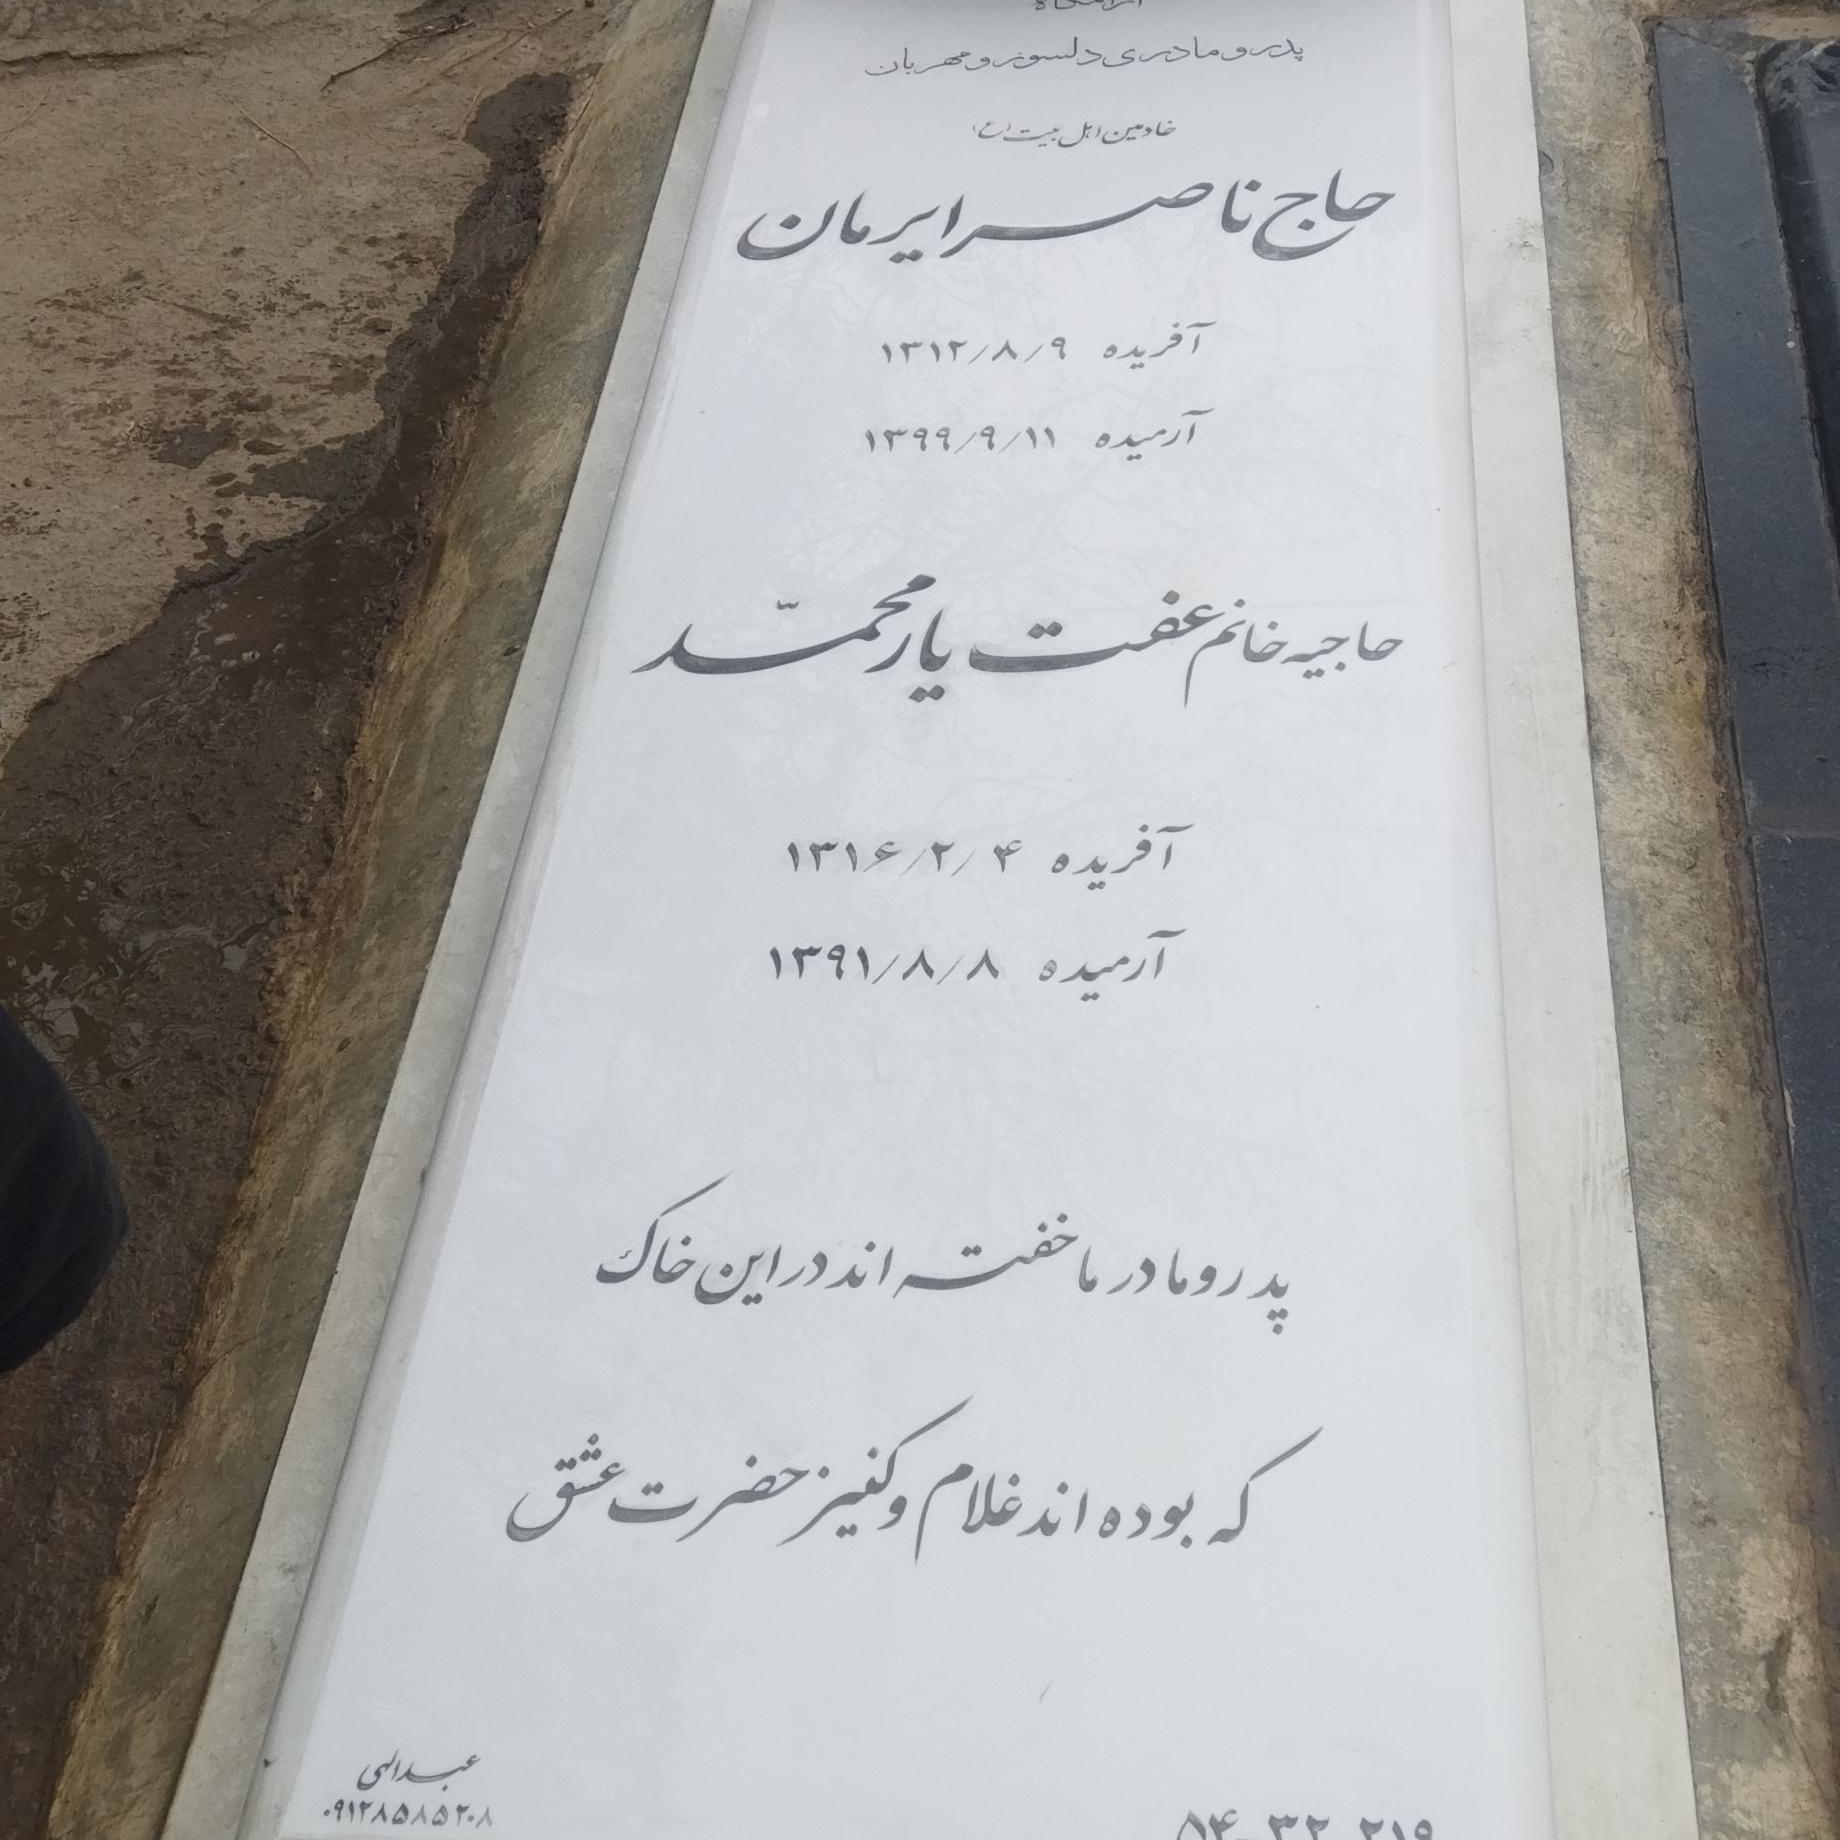 آرامگاه
پدر و مادری دلسوز و مهربان
خادمین اهل بیت (ع)
حاج ناصر ایرمان
آفریده ۱۳۱۲/۸/۹
آرمیده ۱۳۹۹/۹/۱۱
حاجیه خانم عفت یارمحمّد
آفریده ۱۳۱۶/۲/۴
آرمیده ۱۳۹۱/۸/۸
پدر و مادر ما خفته اند در این خاک
که بوده اند غلام و کنیز حضرت عشق
عبدالهی
۰۹۱۲۸۵۸۵۲۰۸
۵۴-۳۲-۲۱۹